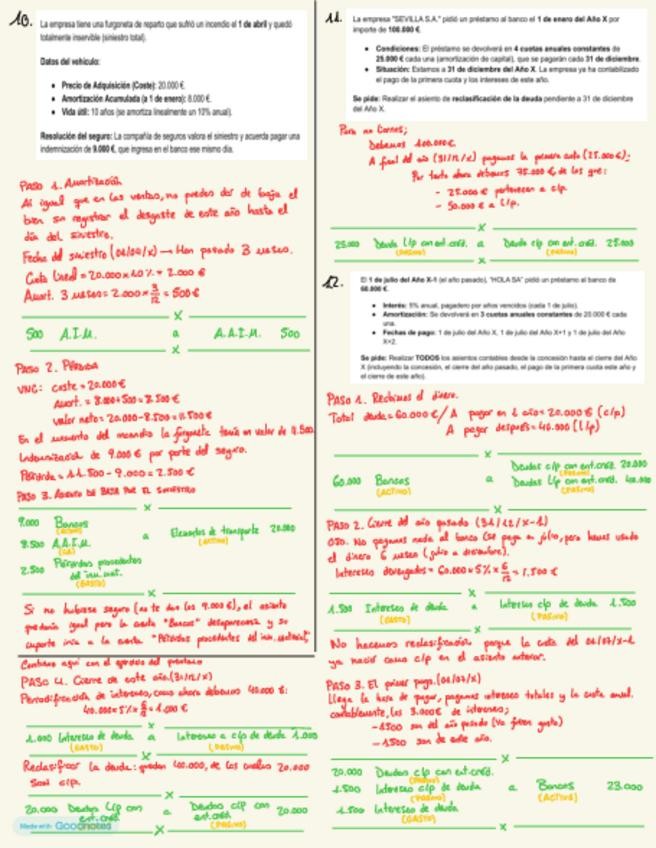 10.
La empresa tiene una furgoneta de reparto que sufrió un incendio el 1 de abril y quedó
totalmente inservible (siniestro total).
Datos del vehículo:
• Precio de Adquisición (Coste): 20.000 €.
• Amortización Acumulada (a 1 de enero): 8.000 €.
• Vida útil: 10 años (se amortiza linealmente un 10% anual).
Resolución del seguro: La compañía de seguros valora el siniestro y acuerda pagar una
indemnización de 9.000 €, que ingresa en el banco ese mismo día.
PASO 1. Amortización
Al igual que en las ventas, no puedes dar de baja el
bien sin registrar el desgaste de este año hasta el
día del siniestro.
Fecha del siniestro (01/04/X) → Han pasado 3 meses.
Cuota anual = 20.000 x 10% = 2.000 €
Amort. 3 meses = 2.000 x 3/12 = 500 €
X
500 A.I.M. a A.A.I.M. 500
X
PASO 2. Pérdida
VNC: coste = 20.000 €
Amort. = 8.000 + 500 = 8.500 €
Valor neto = 20.000 - 8.500 = 11.500 €
En el momento del incendio la furgoneta tenía un valor de 11.500.
Indemnización de 9.000 € por parte del seguro.
Pérdida = 11.500 - 9.000 = 2.500 €
PASO 3. ASIENTO DE BAJA POR EL SINIESTRO
X
9.000 Bancos
(ACTIVO)
8.500 A.A.I.M. a Elementos de transporte 20.000
(ACTIVO)
2.500 Pérdidas procedentes
del inm. mat.
(GASTO)
X
Si no hubiese seguro (no te dan los 9.000 €), el asiento
quedaría igual pero la cuenta "Bancos" desaparecería y su
importe iría a la cuenta "Pérdidas procedentes del inm. material"
Continuo aquí con el ejercicio del préstamo
PASO 4. Cierre de este año (31/12/X)
Periodificación de intereses, como ahora debemos 40.000 €:
40.000 x 5% x 6/12 = 1.000 €
X
1.000 Intereses de deuda a Intereses a c/p de deuda 1.000
(GASTO) (PASIVO)
X
Reclasificar la deuda: quedan 40.000, de los cuales 20.000
son c/p.
X
20.000 Deudas l/p con
ent. créd. a Deudas c/p con
ent. créd. 20.000
(PASIVO)
X
Made with Goodnotes
11.
La empresa "SEVILLA S.A." pidió un préstamo al banco el 1 de enero del Año X por
importe de 100.000 €.
• Condiciones: El préstamo se devolverá en 4 cuotas anuales constantes de
25.000 € cada una (amortización de capital), que se pagarán cada 31 de diciembre.
• Situación: Estamos a 31 de diciembre del Año X. La empresa ya ha contabilizado
el pago de la primera cuota y los intereses de este año.
Se pide: Realizar el asiento de reclasificación de la deuda pendiente a 31 de diciembre
del Año X.
Debemos 100.000 €
A final del año (31/12/X) pagamos la primera cuota (25.000 €).
Por tanto ahora debemos 75.000 €, de los que:
- 25.000 € pertenecen a c/p.
- 50.000 € a l/p.
X
25.000 Deuda l/p con ent. créd. a Deuda c/p con ent. créd. 25.000
(PASIVO) (PASIVO)
X
12.
El 1 de julio del Año X-1 (el año pasado), "HOLA SA" pidió un préstamo al banco de
60.000 €.
• Interés: 5% anual, pagadero por años vencidos (cada 1 de julio).
• Amortización: Se devolverá en 3 cuotas anuales constantes de 20.000 € cada
una.
• Fechas de pago: 1 de julio del Año X, 1 de julio del Año X+1 y 1 de julio del Año
X+2.
Se pide: Realizar TODOS los asientos contables desde la concesión hasta el cierre del Año
X (incluyendo la concesión, el cierre del año pasado, el pago de la primera cuota este año y
el cierre de este año).
PASO 1. Recibimos el dinero.
Total deuda = 60.000 € / A pagar en 1 año = 20.000 € (c/p)
A pagar después = 40.000 (l/p)
X
60.000 Bancos a Deudas c/p con ent. créd. 20.000
(ACTIVO) (PASIVO)
Deudas l/p con ent. créd. 40.000
(PASIVO)
X
PASO 2. Cierre del año pasado (31/12/X-1)
OJO. No pagamos nada al banco (se paga en julio, pero hemos usado
el dinero 6 meses (julio a diciembre).
Intereses devengados = 60.000 x 5% x 6/12 = 1.500 €
X
1.500 Intereses de deuda a Intereses c/p de deuda 1.500
(GASTO) (PASIVO)
X
No hacemos reclasificación porque la cuota del 01/07/X-1
ya nació como c/p en el asiento anterior.
PASO 3. El primer pago. (01/07/X)
Llega la hora de pagar, pagamos intereses totales y la cuota anual.
Contablemente, los 3.000 € de intereses;
- 1500 son del año pasado (ya fueron gasto)
- 1500 son de este año.
X
20.000 Deudas c/p con ent. créd.
(PASIVO)
1.500 Intereses c/p de deuda a Bancos 23.000
(PASIVO) (ACTIVO)
1.500 Intereses de deuda
(GASTO)
X